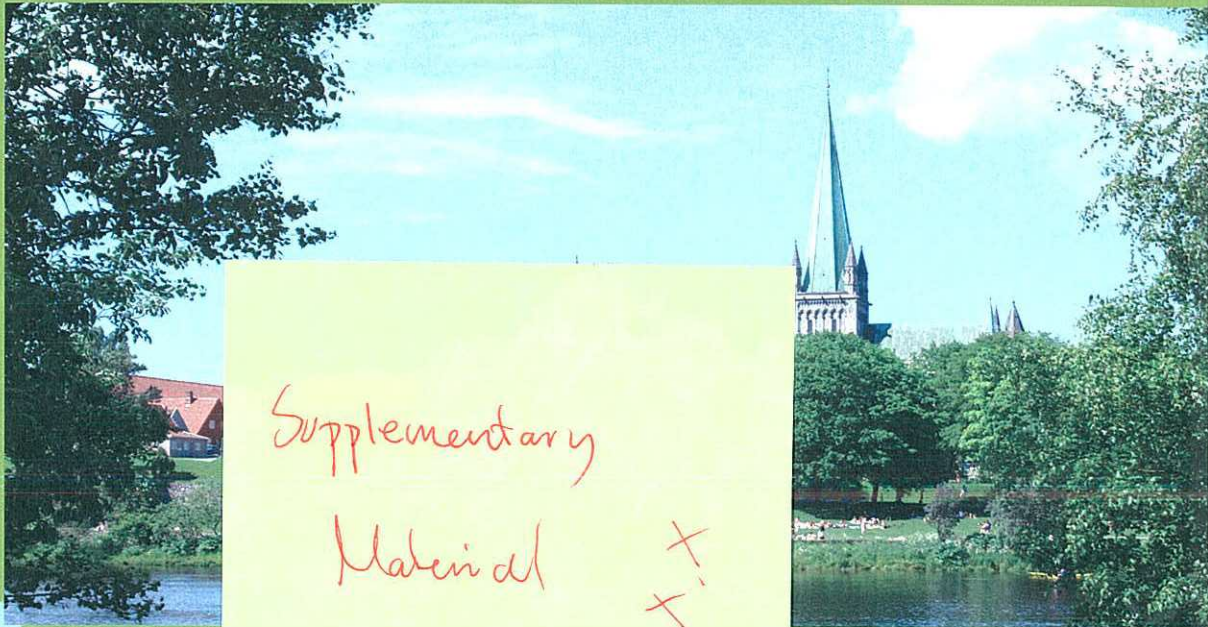 Supplementary
Material